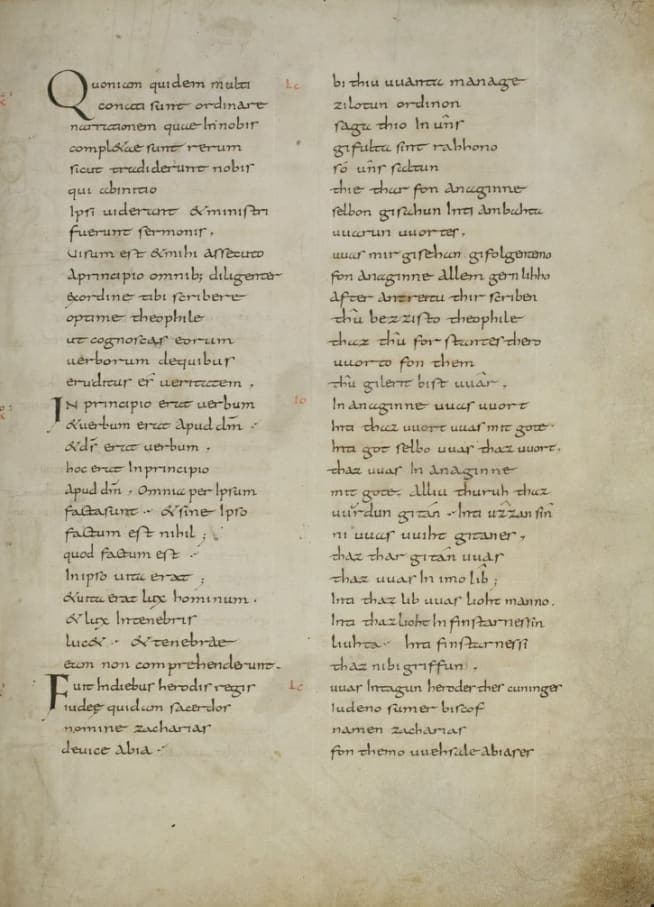 Quoniam quidem multi
conati sunt ordinare
narrationem quae In nobis
compl&ae sunt rerum
sicut tradiderunt nobis
qui abinitio
Ipsi uiderunt &ministri
fuerunt sermonis,
Uisum est &mihi assecuto
Aprincipio omnib; diligenter
exordine tibi scribere
optime theophile
ut cognoscas eorum
uerborum dequibus
eruditus es ueritatem,
IN principio erat uerbum
&uerbum erat Apud dm̄
&ds̄ erat uerbum,
hoc erat Inprincipio
Apud dm̄, Omnia per Ipsum
factasunt &sine Ipso
factum est nihil;
quod factum est
Inipso uita erat;
&uita erat lux hominum.
&lux Intenebris
luc& &tenebrae
eam non comprehenderunt.
Fuit Indiebus herodis regis
iudeę quidam sacerdos
nomine zacharias
deuice Abia
Lc
bi thiu uuanta manage
zilotun ordinon
saga thio In uns
gifulta sint rahhono
só uns saltun
thie thar fon anaginne
selbon gisahun Inti Ambahta
uuarun uuortes,
uuas mir gisehan gifolgentemo
fon anaginne Allem gernlihho
After Antreitu thir scriben
thû bezzisto theophile
thaz thû forstantes thero
uuorto fon them
thû gilerit bist uuâr,
Io
In anaginne uuas uuort
Inti thaz uuort uuas mit gote
Inti got selbo uuas thaz uuort,
thaz uuas In anaginne
mit gote. Alliu thuruh thaz
uuurdun gitân Inti ûzzan sîn
ni uuas uuiht gitanes,
thaz thar gitân uuas
thaz uuas In imo lîb;
Inti thaz lib uuas lioht manno.
Inti thaz lioht In finstarnessin
liuhta Inti finstarnessi
thaz nibigriffun,
Lc
uuas Intagun herodes thes cuninges
Iudeno sumer biscof
namen zacharias
fon themo uuehsale abiases